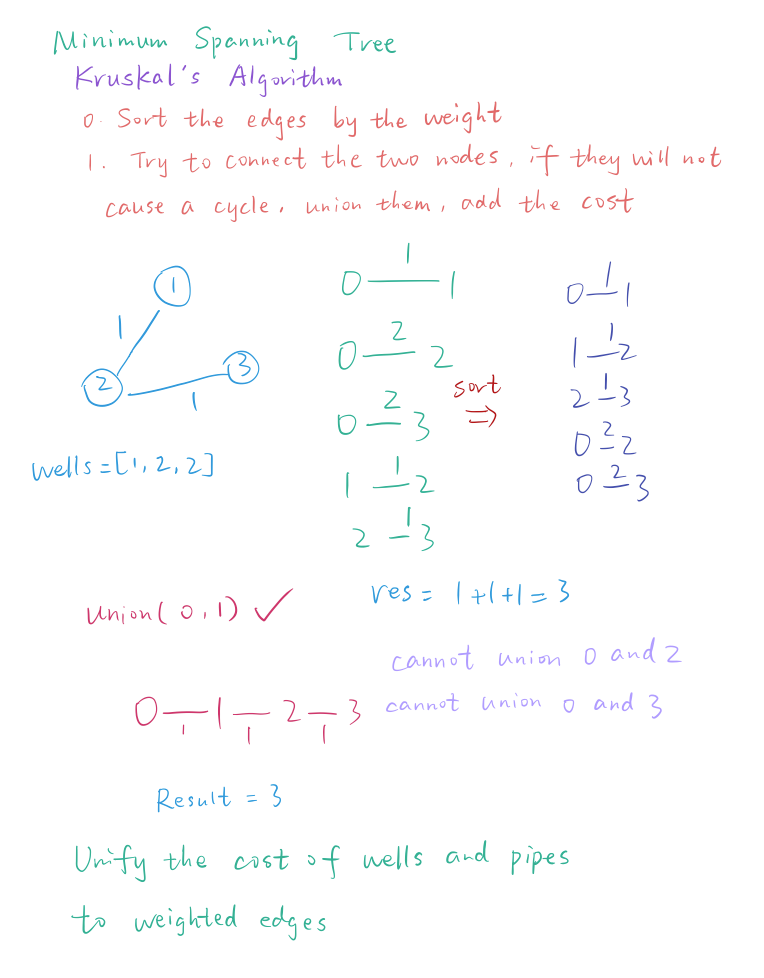 Minimum Spanning Tree
Kruskal's Algorithm
0. Sort the edges by the weight
1. Try to connect the two nodes, if they will not
cause a cycle, union them, add the cost
1
1
2
3
1
wells=[1,2,2]
0 1 1
0 2 2
0 2 3
1 1 2
2 1 3
sort
⇒
0 1 1
1 1 2
2 1 3
0 2 2
0 2 3
union(0,1) ✓
res = 1+1+1=3
cannot union 0 and 2
cannot union 0 and 3
0 — 1 — 2 — 3
1 1 1
Result = 3
Unify the cost of wells and pipes
to weighted edges